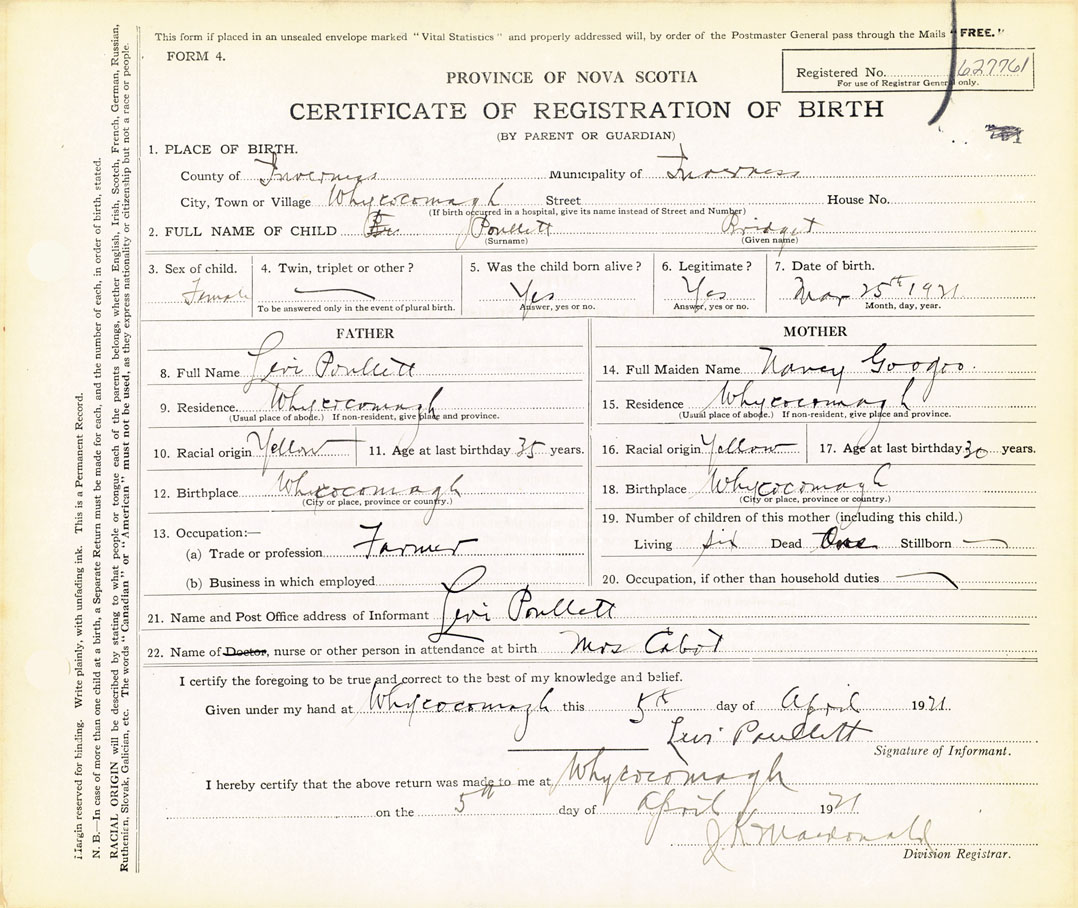 This form if placed in an unsealed envelope marked "Vital Statistics" and properly addressed will, by order of the Postmaster General pass through the Mails "FREE."
FORM 4.
Registered No. 627761
For use of Registrar General only.
PROVINCE OF NOVA SCOTIA
CERTIFICATE OF REGISTRATION OF BIRTH
(BY PARENT OR GUARDIAN)
1. PLACE OF BIRTH.
County of Inverness Municipality of Inverness
City, Town or Village Whycocomagh Street House No.
(If birth occurred in a hospital, give its name instead of Street and Number)
2. FULL NAME OF CHILD Poullett Bridget
(Surname) (Given name)
3. Sex of child. 4. Twin, triplet or other? 5. Was the child born alive? 6. Legitimate? 7. Date of birth.
Female Yes Yes Mar 25th 1921
To be answered only in the event of plural birth. Answer, yes or no. Answer, yes or no. Month, day, year.
FATHER
8. Full Name Levi Poullett
9. Residence. Whycocomagh
(Usual place of abode.) If non-resident, give place and province.
10. Racial origin Yellow 11. Age at last birthday 35 years.
12. Birthplace Whycocomagh
(City or place, province or country.)
13. Occupation:—
(a) Trade or profession Farmer
(b) Business in which employed
MOTHER
14. Full Maiden Name Nancy Googoo.
15. Residence Whycocomagh
(Usual place of abode.) If non-resident, give place and province.
16. Racial origin Yellow 17. Age at last birthday 30 years.
18. Birthplace Whycocomagh
(City or place, province or country.)
19. Number of children of this mother (including this child.)
Living six Dead One Stillborn —
20. Occupation, if other than household duties
21. Name and Post Office address of Informant Levi Poullett
22. Name of Doctor, nurse or other person in attendance at birth Mrs Cabot
I certify the foregoing to be true and correct to the best of my knowledge and belief.
Given under my hand at Whycocomagh this 5th day of April 1921.
Levi Poullett
Signature of Informant.
I hereby certify that the above return was made to me at Whycocomagh
on the 5th day of April 1921
J. K. Macdonald
Division Registrar.
Margin reserved for binding. Write plainly, with unfading ink. This is a Permanent Record.
N. B.—In case of more than one child at a birth, a Separate Return must be made for each, and the number of each, in order of birth, stated.
RACIAL ORIGIN will be described by stating to what people or tongue each of the parents belongs, whether English, Irish, Scotch, French, German, Russian,
Ruthenian, Slovak, Galician, etc. The words "Canadian" or "American" must not be used, as they express nationality or citizenship but not a race or people.